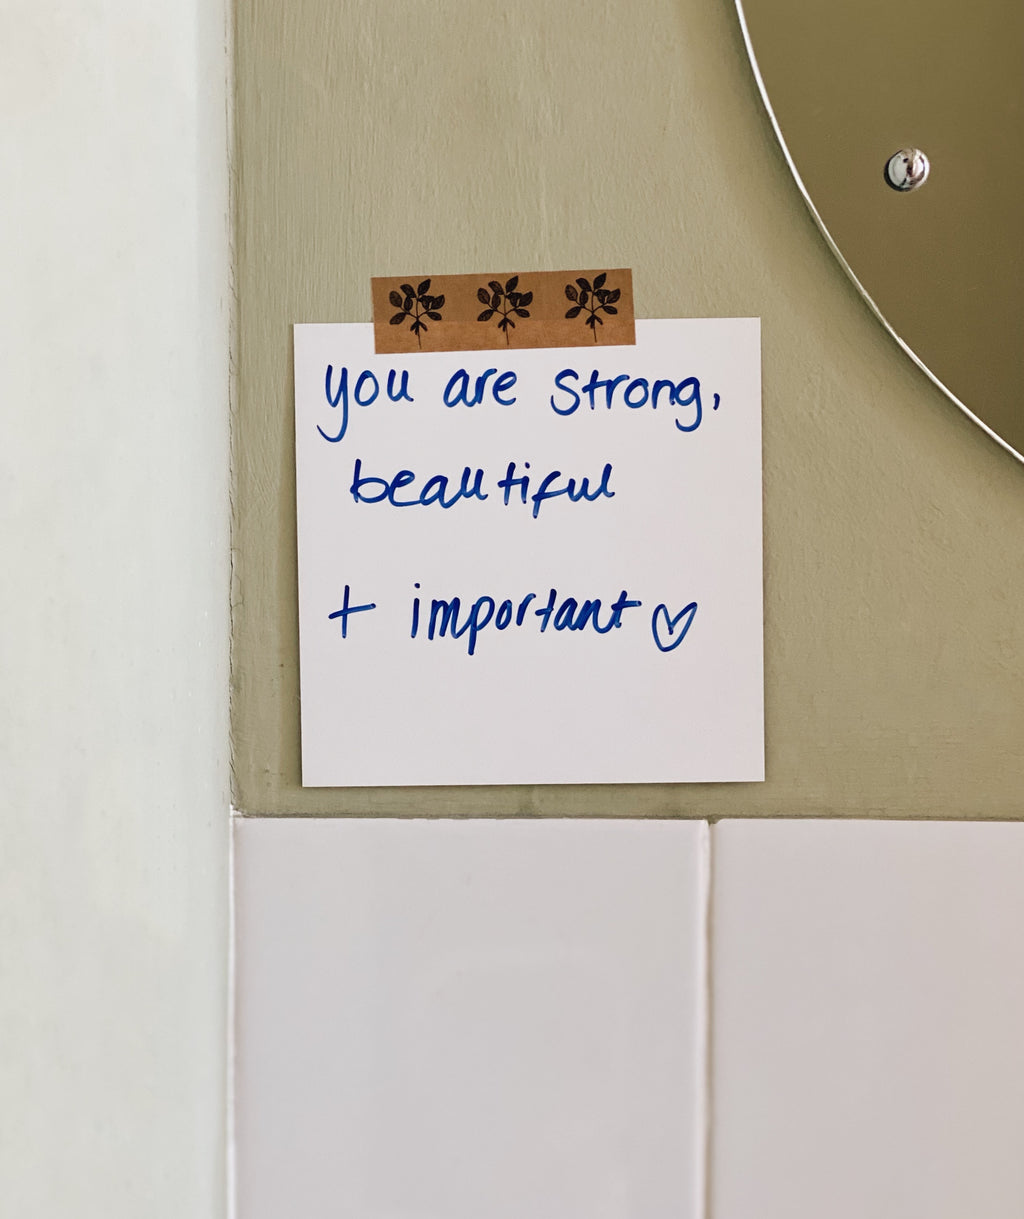 you are strong,
beautiful
+ important ♡